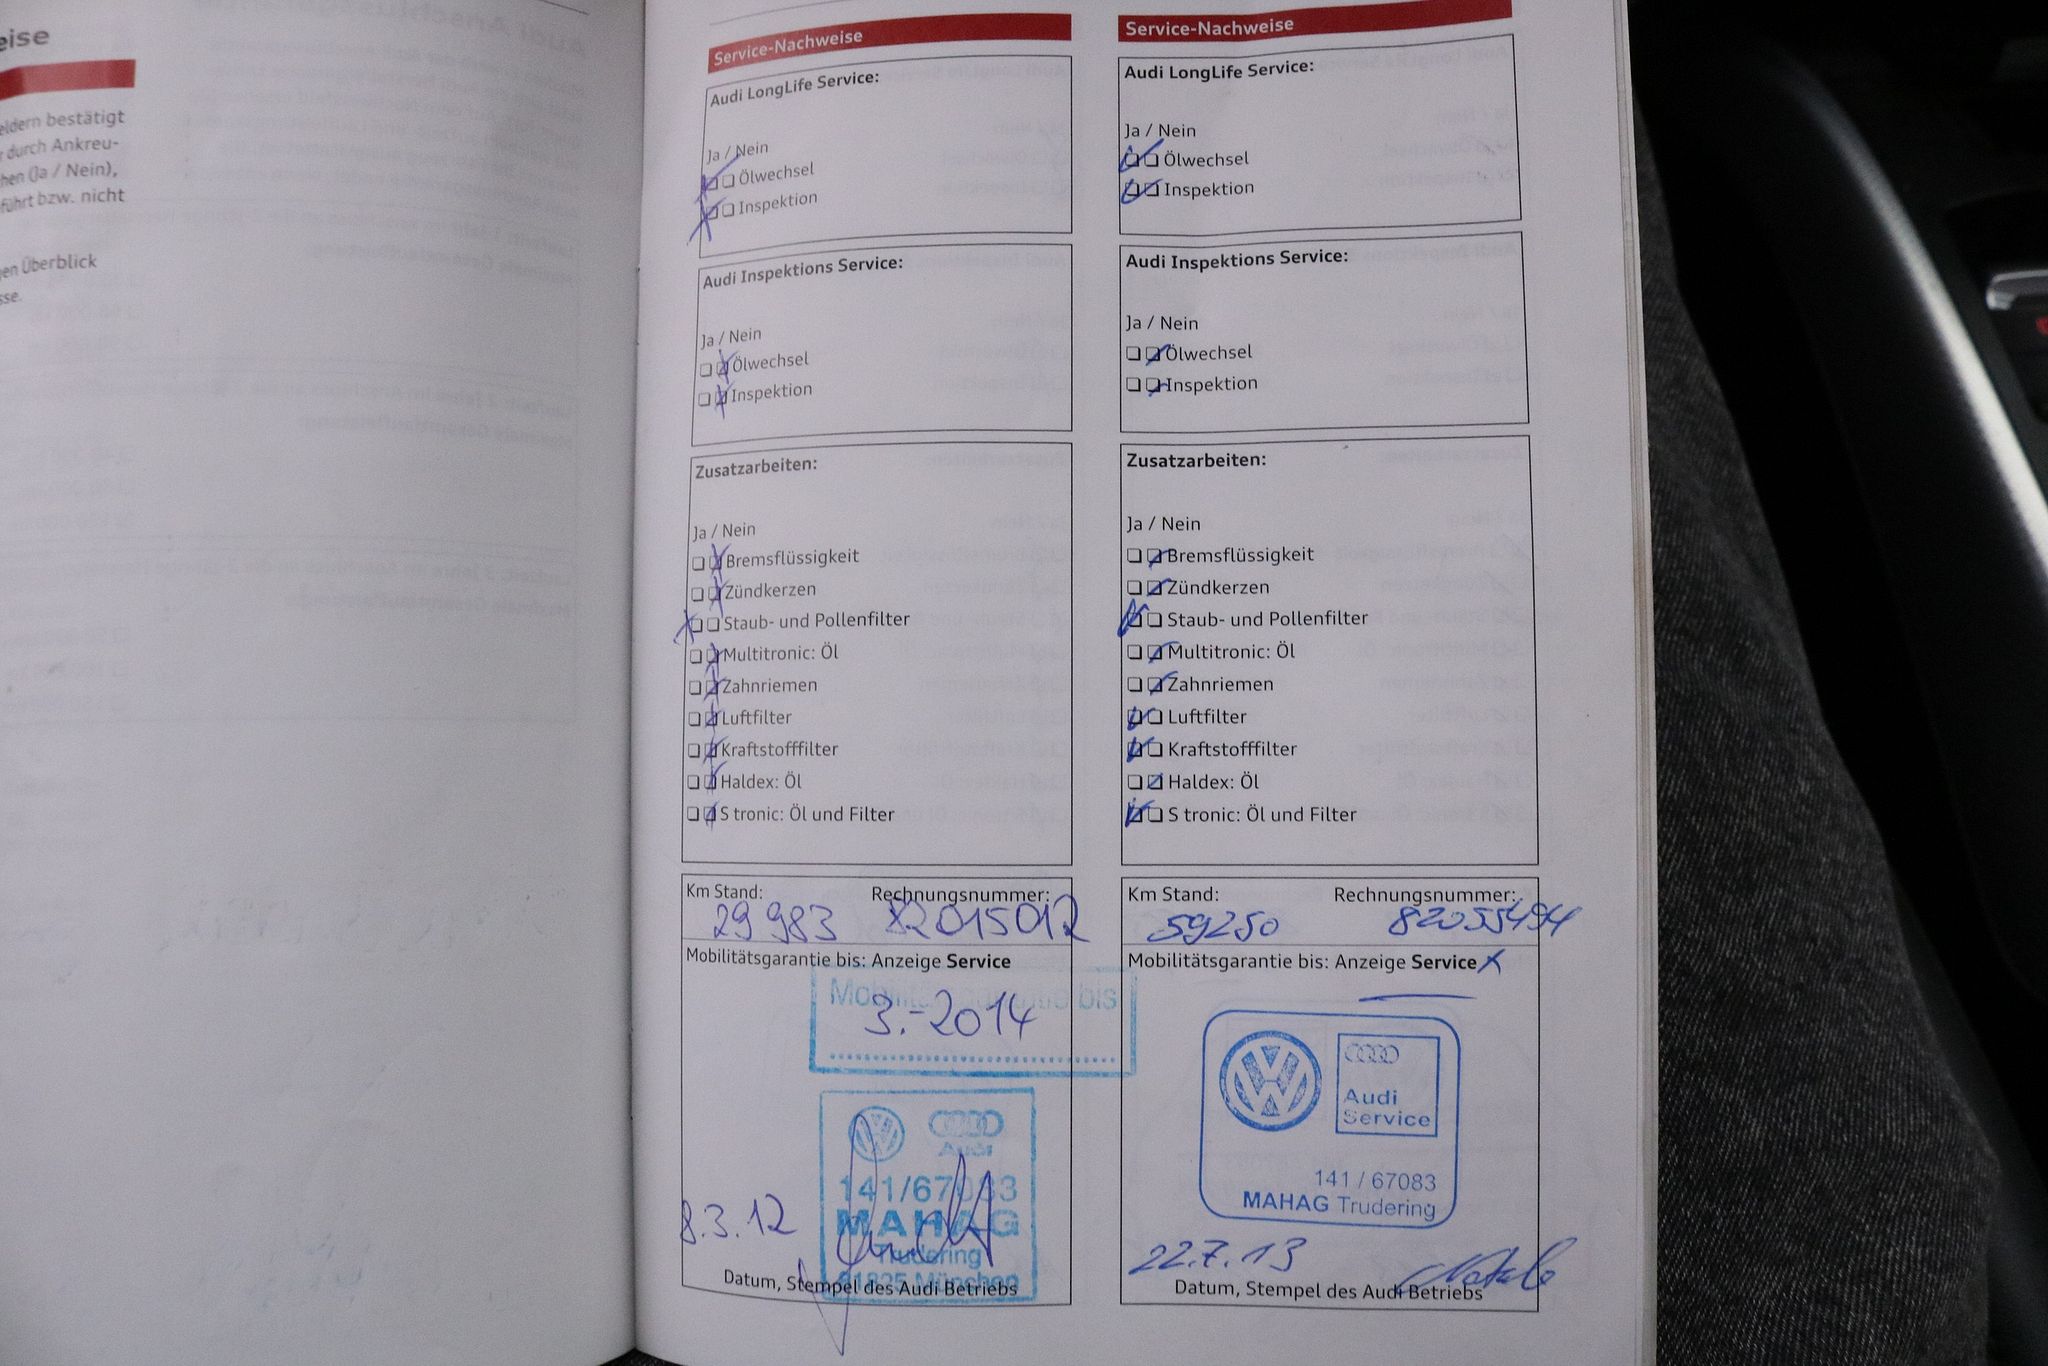 eise
eldern bestätigt
r durch Ankreu-
hen (Ja / Nein),
führt bzw. nicht
gen Überblick
sse.
Service-Nachweise
Audi LongLife Service:
Ja / Nein
Ölwechsel
Inspektion
Audi Inspektions Service:
Ja / Nein
Ölwechsel
Inspektion
Zusatzarbeiten:
Ja / Nein
Bremsflüssigkeit
Zündkerzen
Staub- und Pollenfilter
Multitronic: Öl
Zahnriemen
Luftfilter
Kraftstofffilter
Haldex: Öl
S tronic: Öl und Filter
Km Stand: Rechnungsnummer:
29 983 82015012
Mobilitätsgarantie bis: Anzeige Service
Mobilitätsgarantie bis
3.-2014
Audi
141/67083
MAHAG
Trudering
81825 München
8.3.12
Datum, Stempel des Audi Betriebs
Service-Nachweise
Audi LongLife Service:
Ja / Nein
Ölwechsel
Inspektion
Audi Inspektions Service:
Ja / Nein
Ölwechsel
Inspektion
Zusatzarbeiten:
Ja / Nein
Bremsflüssigkeit
Zündkerzen
Staub- und Pollenfilter
Multitronic: Öl
Zahnriemen
Luftfilter
Kraftstofffilter
Haldex: Öl
S tronic: Öl und Filter
Km Stand: Rechnungsnummer:
59250 82055494
Mobilitätsgarantie bis: Anzeige Service x
Audi
Service
141 / 67083
MAHAG Trudering
22.7.13
Datum, Stempel des Audi Betriebs